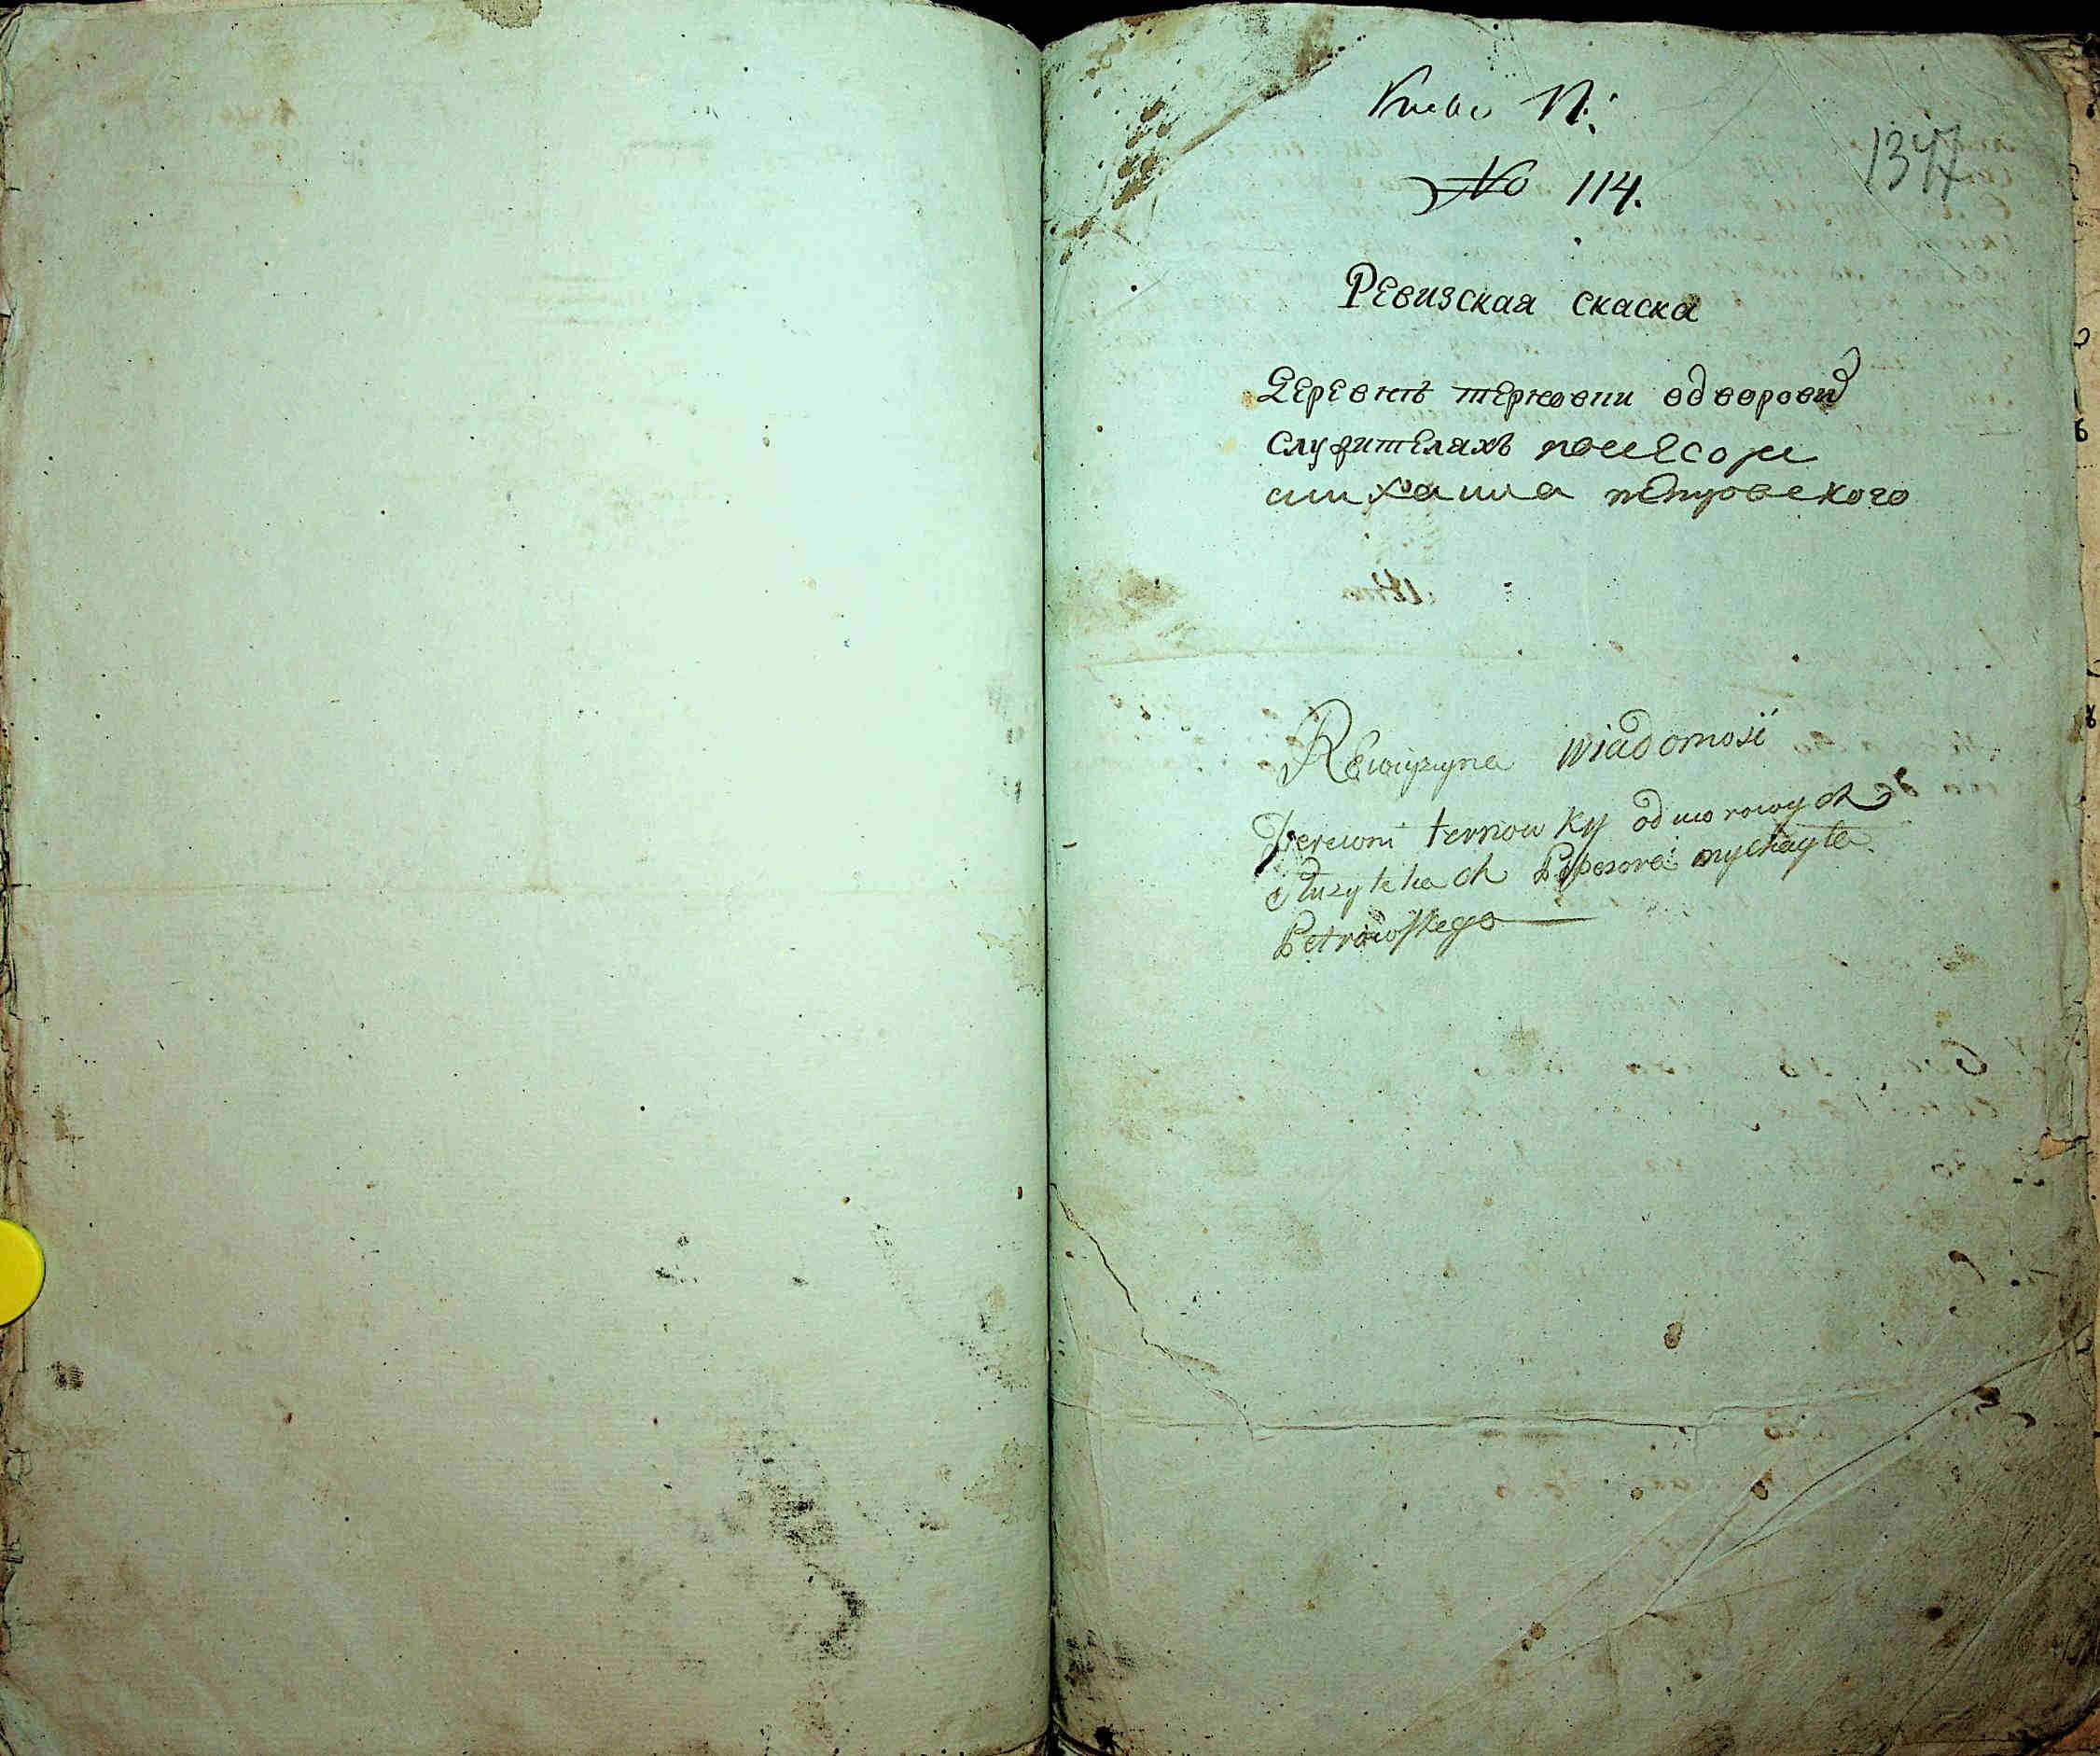 N:
No 114.
134
Ревизская скаска
Деревнѣ терновки одворови
служителахъ посесори
михаила петровского
Rewizyina wiadomosi
Derewni ternowky odworowych
służytelach Posesora mychayła
Petrowskego